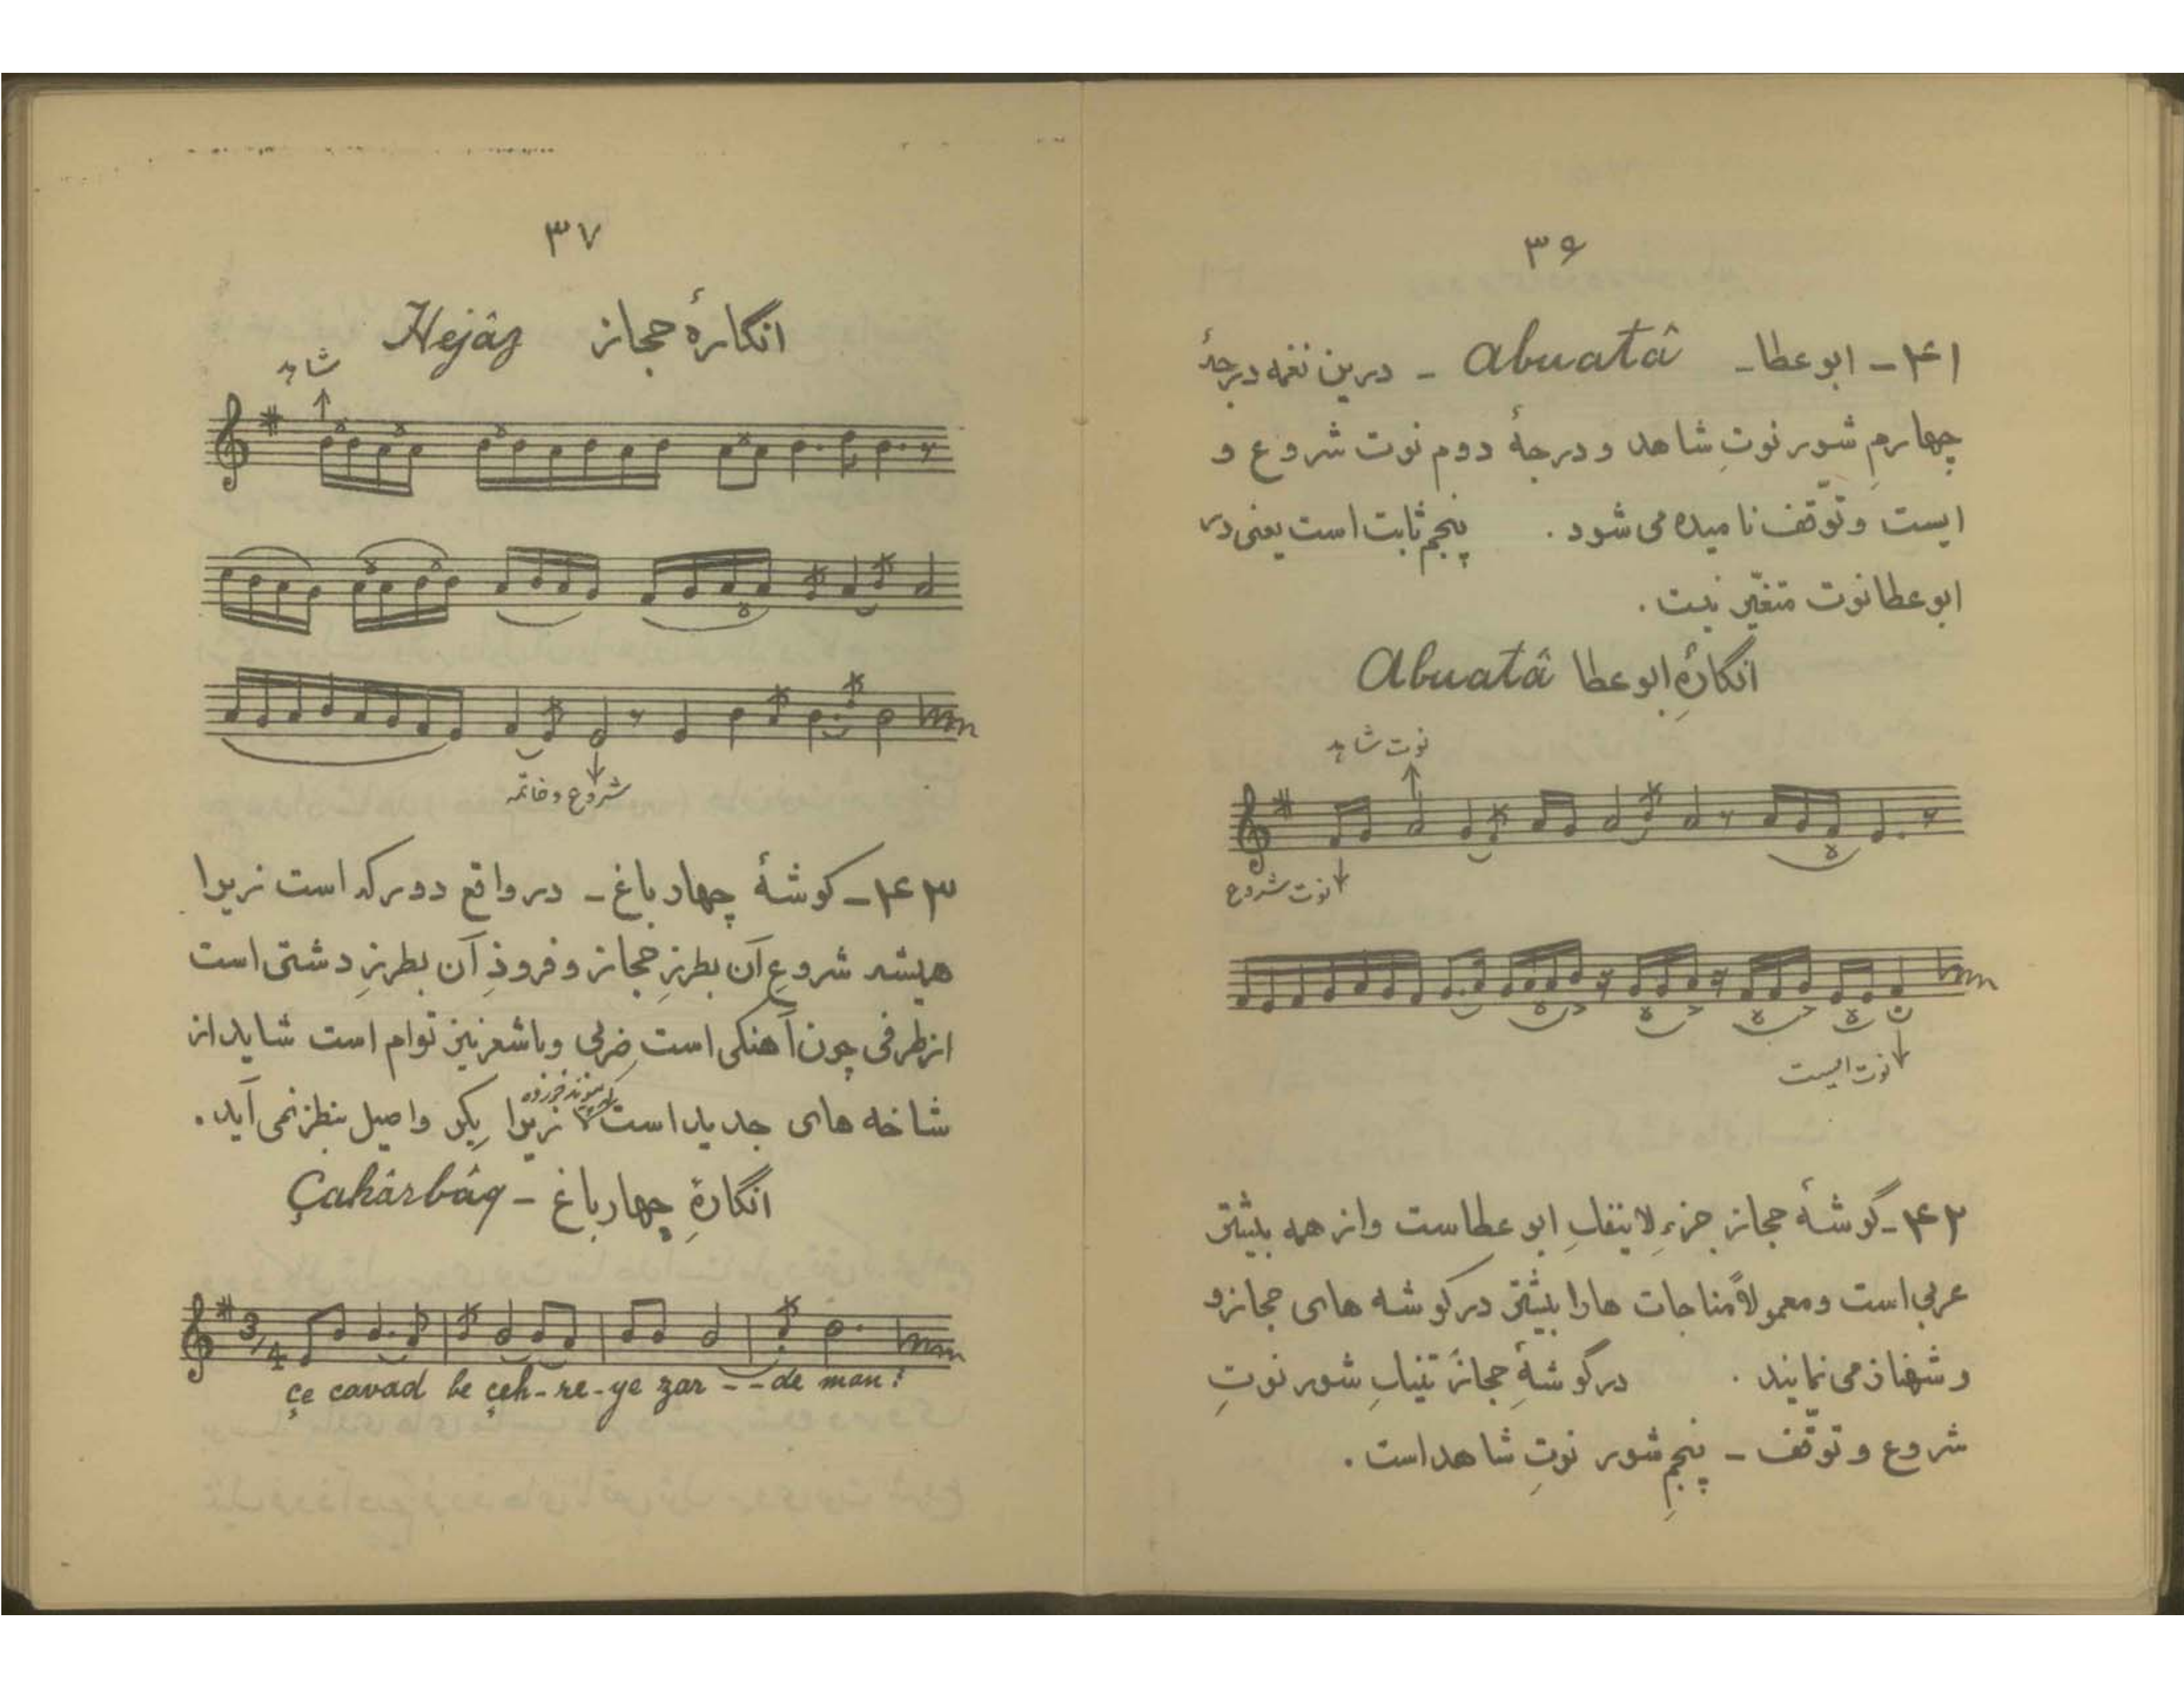 ۳۶
۴۱ - ابوعطا - Abuatâ - درین نغمه درجهٔ
چهارمِ شور نوتِ شاهد و درجهٔ دوم نوت شروع و
ایست و توقّف نامیده می شود . پنجم ثابت است یعنی در
ابوعطا نوت متغیّر نیست .
انگارهٔ ابوعطا Abuatâ
نوت شاهد
نوت شروع
نوت ایست
۴۲ - گوشهٔ حجاز جزءِ لاینفکِ ابوعطاست و از همه بیشتر
عربی است و معمولاً مناجات ها را بیشتر در گوشه های حجاز و
و شهناز می نمایند . در گوشهٔ حجاز تنیکِ شور نوتِ
شروع و توقّف - پنجمِ شور نوتِ شاهد است .
۳۷
انگارهٔ حجاز Hejâz
شاهد
شروع و خاتمه
۴۳ - گوشهٔ چهارباغ - در واقع دو رگه است زیرا
همیشه شروعِ آن بطرزِ حجاز و فرودِ آن بطرزِ دشتی است
از طرفی چون آهنگی است ضربی و با شعر نیز توام است شاید از
شاخه های جدید است که پیوند خورده زیرا بِکر و اصیل بنظر نمی آید .
انگارهٔ چهارباغ - Çahârbâq
3/4
çe cavad be çeh-re-ye zar - - de man :